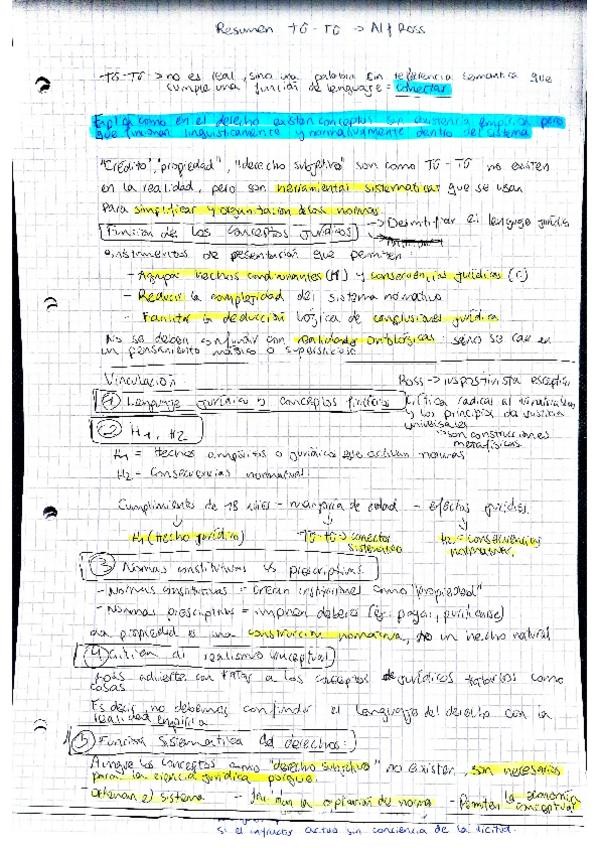 Resumen tû-tû → Alf Ross
Tû-Tû → no es real, sino una palabra sin referencia semantica que
cumple una función de lenguaje = conectar
Explica como en el derecho existen conceptos sin existencia empírica pero
que funcionan linguisticamente y normativamente dentro del sistema
"Crédito", "propiedad", "derecho subjetivo" son como Tû-Tû no existen
en la realidad, pero son herramientas sistematicas que se usan
para simplificar y organización de las normas.
Función de los conceptos jurídicos → Desmitificar el lenguaje jurídic
instrumentos de presentación que permiten:
- Agrupar hechos condicionantes (H) y consecuencias jurídicas (C)
- Reducir la complejidad del sistema normativo
- Facilitar la deducción lógica de conclusiones jurídica
No se deben confundir con realidades ontológicas sino se cae en
un pensamiento mágico o supersticioso
Vinculación
Ross → iuspositivista
① Lenguaje jurídico y conceptos ficticios
Crítica radical al
y los principios de justicia
universales
son construcciones
metafísicas
② H1, H2
H1 = Hechos empíricos o jurídicos que activan normas
H2 = Consecuencias normativas.
Cumplimiento de 18 años - mayoría de edad - efectos jurídicos
H1 (Hecho jurídico) Tû-tû → conector H2 = consecuencias
sistematico normativas.
③ Normas constitutivas vs prescriptivas
- Normas constitutivas = crean instituciones como "propiedad"
- Normas prescriptivas = imponen deberes (ej: pagar,
La propiedad es una construccion normativa, no un hecho natural
④ Critica al realismo conceptual
Ross advierte con tratar a los conceptos jurídicos tratarlos como
cosas
Es decir, no debemos confundir el lenguaje del derecho con la
realidad empírica
⑤ Función sistematica del derecho:
Aunque los conceptos como "derecho subjetivo" no existen, son necesarios
para la ciencia jurídica porque:
- Ordenan el sistema - la aplicación de norma - Permiten la economía
conceptual
si el infractor actuo sin conciencia de la ilicitud.